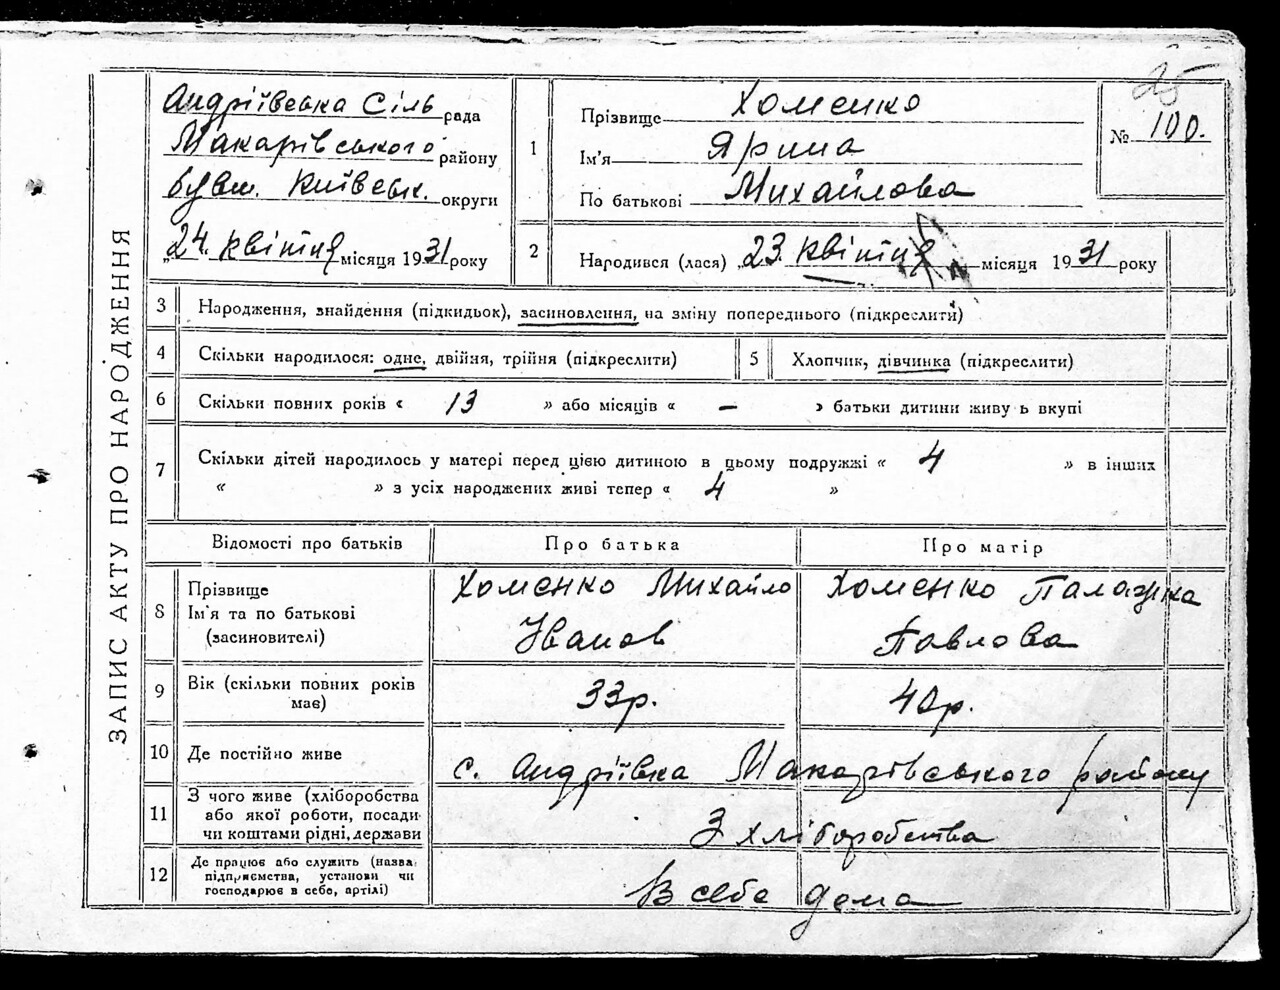 25
ЗАПИС АКТУ ПРО НАРОДЖЕННЯ
Андріївська Сіль рада
Макарівського району
бувш. Київськ. округи
„24„ квітня місяця 1931 року
1
Прізвище Хоменко
Ім'я Ярина
По батькові Михайлова
№ 100.
2
Народився (лася) „23„ квітня місяця 1931 року
3 Народження, знайдення (підкидьок), засиновлення, на зміну попереднього (підкреслити)
4 Скільки народилося: одне, двійня, трійня (підкреслити)
5 Хлопчик, дівчинка (підкреслити)
6 Скільки повних років « 13 » або місяців « — » батьки дитини живу ь вкупі
7 Скільки дітей народилось у матері перед цією дитиною в цьому подружжі « 4 » в інших
« » з усіх народжених живі тепер « 4 »
Відомості про батьків
Про батька
Про матір
8 Прізвище
Ім'я та по батькові
(засиновителі)
Хоменко Михайло
Іванов
Хоменко Палажка
Павлова
9 Вік (скільки повних років
має)
33р.
40р.
10 Де постійно живе
с. Андріївка Макарівського району
11 З чого живе (хліборобства
або якої роботи, посади
чи коштами рідні, держави
З хліборобства
12 Де працює або служить (назва
підприємства, установи чи
господарює в себе, артілі)
В себе дома